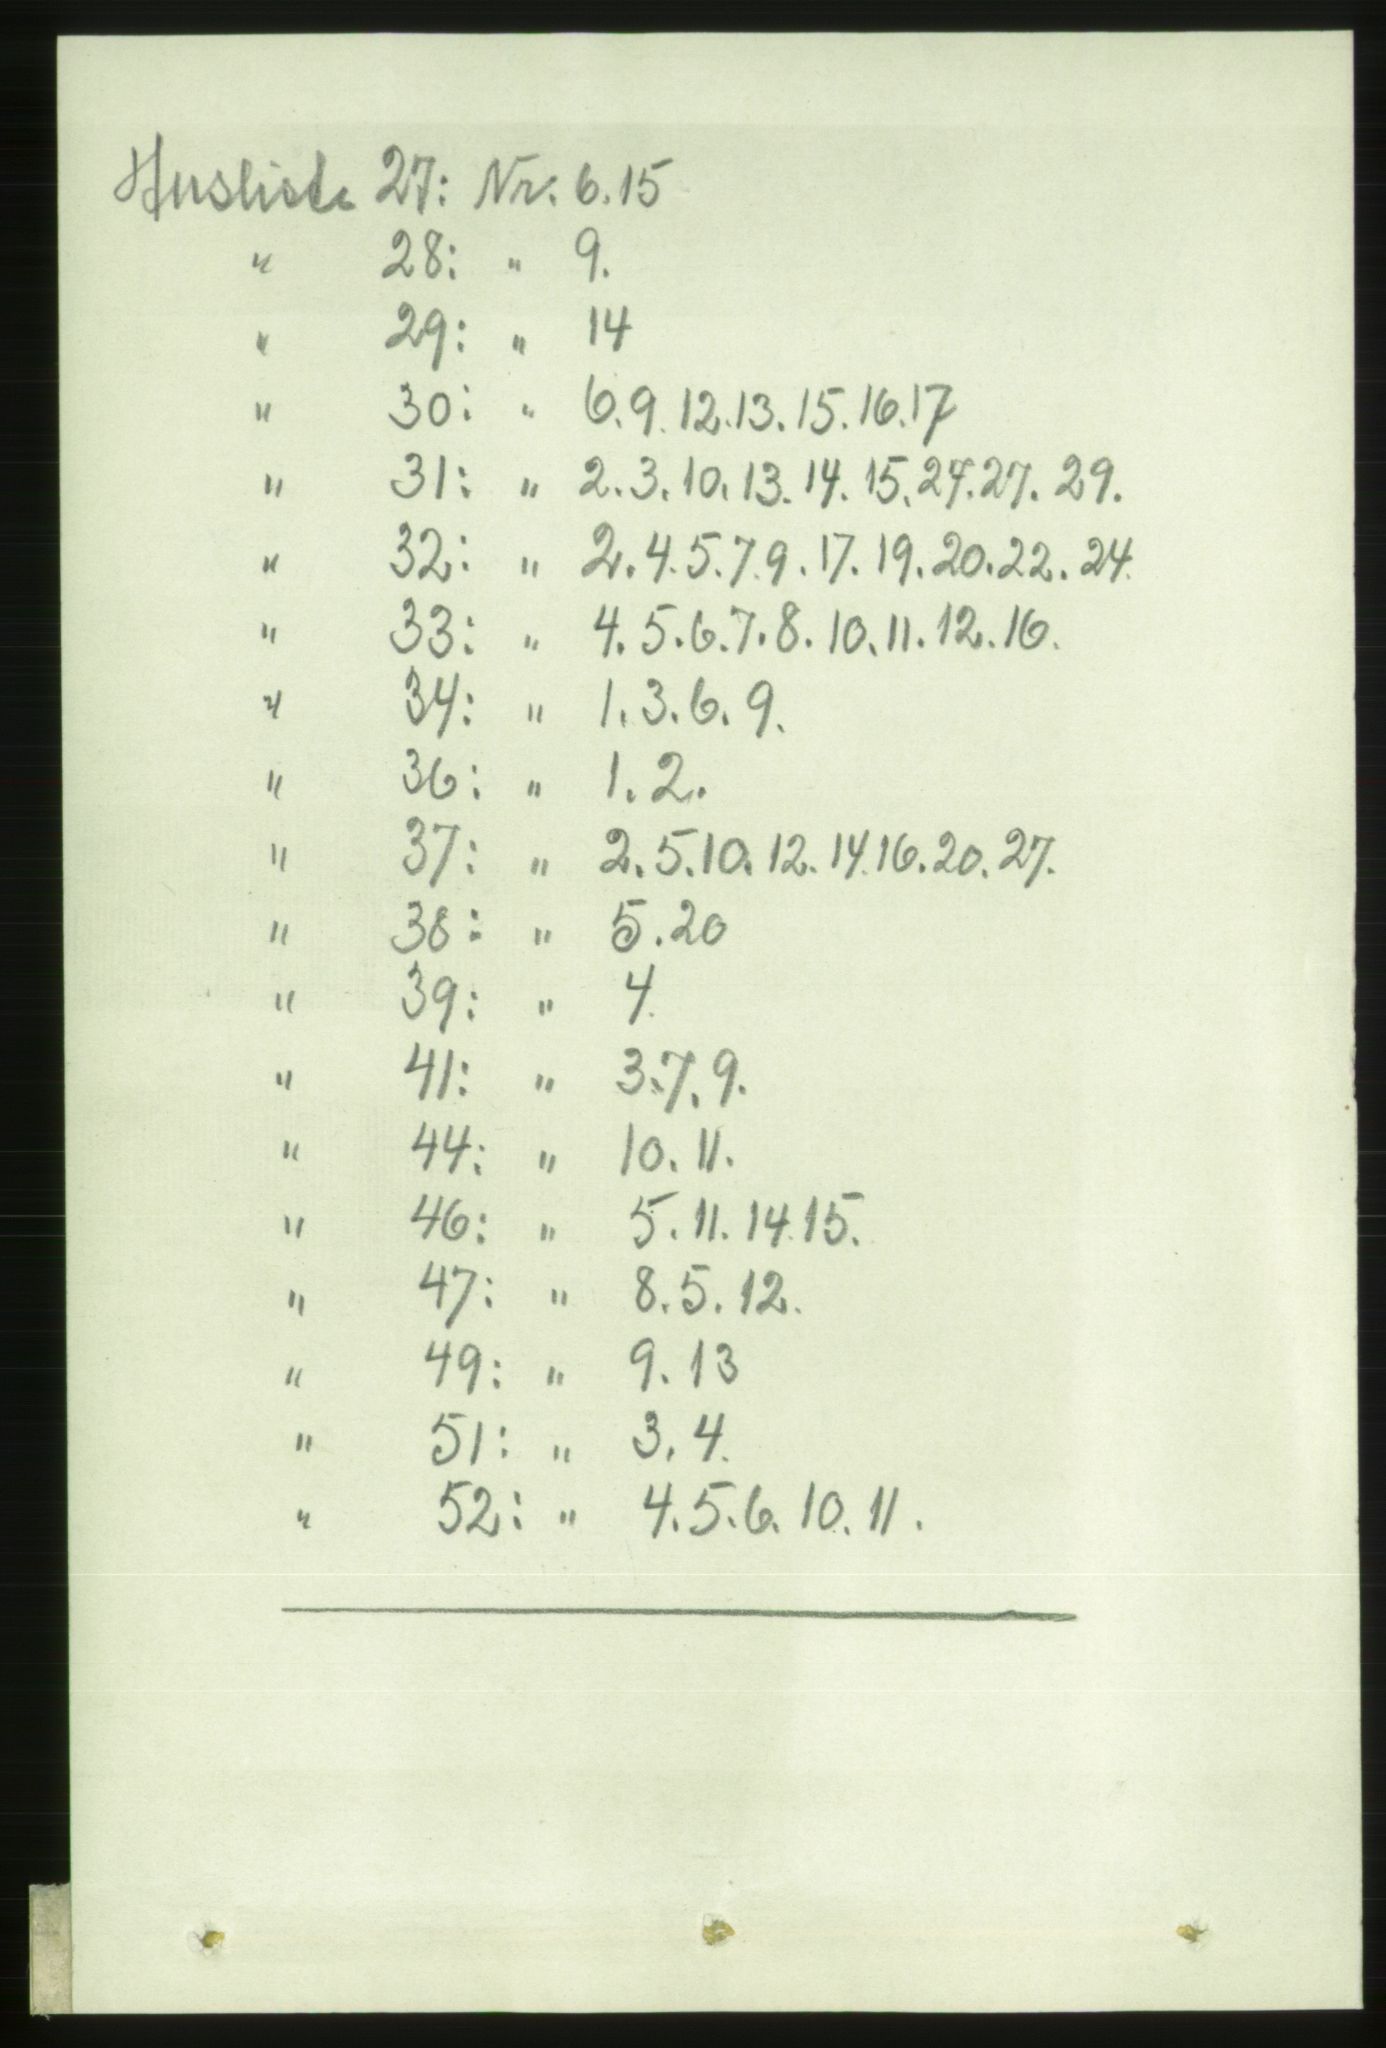 Husliste 27: Nr. 6.15
" 28: " 9.
" 29: " 14
" 30: " 6.9.12.13.15.16.17
" 31: " 2.3.10.13.14.15.24.27.29.
" 32: " 2.4.5.7.9.17.19.20.22.24.
" 33: " 4.5.6.7.8.10.11.12.16.
" 34: " 1.3.6.9.
" 36: " 1.2.
" 37: " 2.5.10.12.14.16.20.27.
" 38: " 5.20
" 39: " 4.
" 41: " 3.7.9.
" 44: " 10.11.
" 46: " 5.11.14.15.
" 47: " 8.5.12.
" 49: " 9.13
" 51: " 3.4.
" 52: " 4.5.6.10.11.